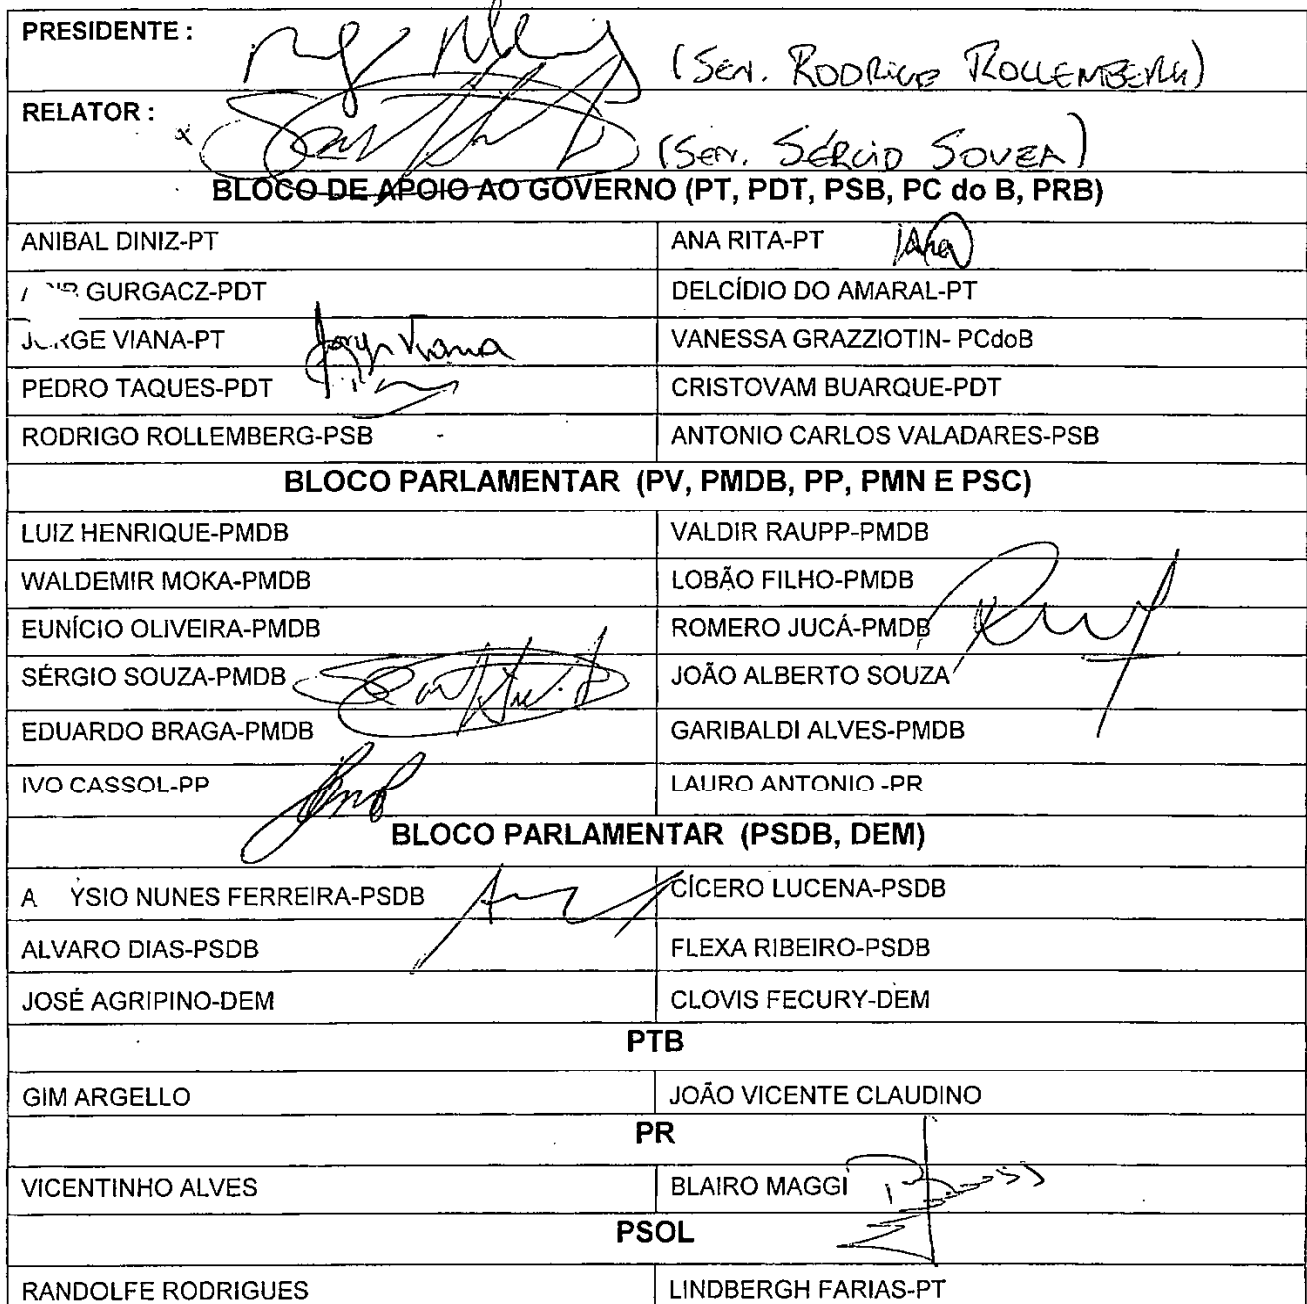 PRESIDENTE :
(Sen. RODRIGO ROLLEMBERG)
RELATOR :
(Sen. SÉRGIO SOUZA)
BLOCO DE APOIO AO GOVERNO (PT, PDT, PSB, PC do B, PRB)
ANIBAL DINIZ-PT ANA RITA-PT Ana
GURGACZ-PDT DELCÍDIO DO AMARAL-PT
JORGE VIANA-PT Jorge Viana VANESSA GRAZZIOTIN- PCdoB
PEDRO TAQUES-PDT CRISTOVAM BUARQUE-PDT
RODRIGO ROLLEMBERG-PSB ANTONIO CARLOS VALADARES-PSB
BLOCO PARLAMENTAR (PV, PMDB, PP, PMN E PSC)
LUIZ HENRIQUE-PMDB VALDIR RAUPP-PMDB
WALDEMIR MOKA-PMDB LOBÃO FILHO-PMDB
EUNÍCIO OLIVEIRA-PMDB ROMERO JUCÁ-PMDB
SÉRGIO SOUZA-PMDB JOÃO ALBERTO SOUZA
EDUARDO BRAGA-PMDB GARIBALDI ALVES-PMDB
IVO CASSOL-PP LAURO ANTONIO -PR
BLOCO PARLAMENTAR (PSDB, DEM)
A YSIO NUNES FERREIRA-PSDB CÍCERO LUCENA-PSDB
ALVARO DIAS-PSDB FLEXA RIBEIRO-PSDB
JOSÉ AGRIPINO-DEM CLOVIS FECURY-DEM
PTB
GIM ARGELLO JOÃO VICENTE CLAUDINO
PR
VICENTINHO ALVES BLAIRO MAGGI
PSOL
RANDOLFE RODRIGUES LINDBERGH FARIAS-PT